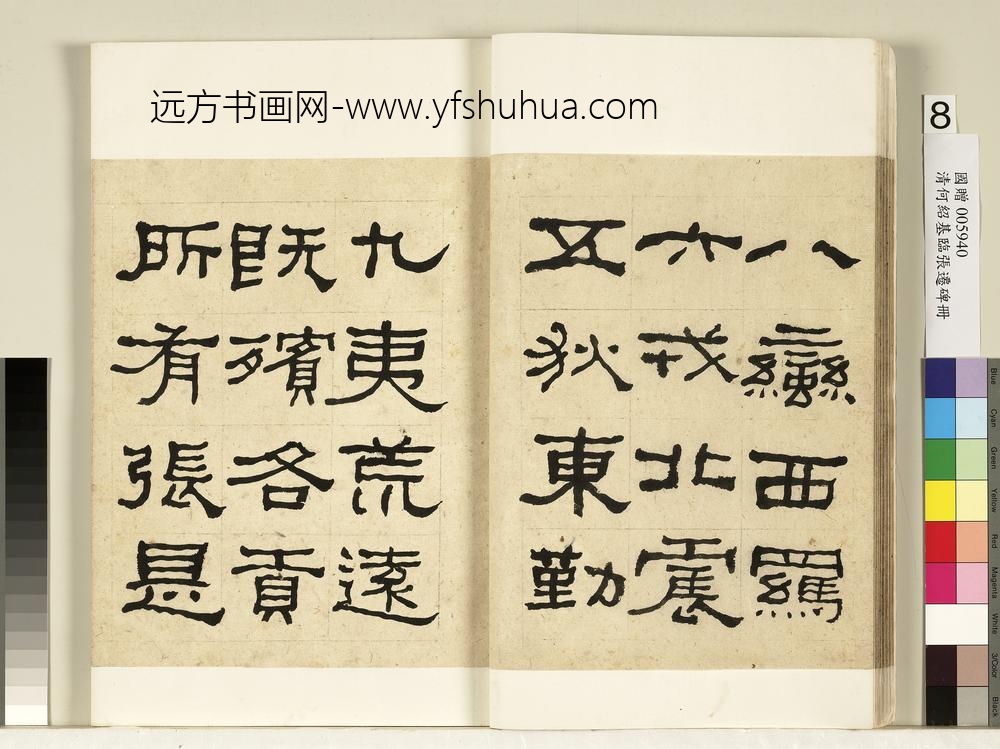 远方书画网-www.yfshuhua.com
八蠻西羈
六戎北震
五狄東勤
九夷荒遠
既殯各貢
所有張是
8
國贈 005940
清何紹基臨張遷碑冊
Blue
Cyan
Green
Yellow
Red
Magenta
White
3/Color
Black